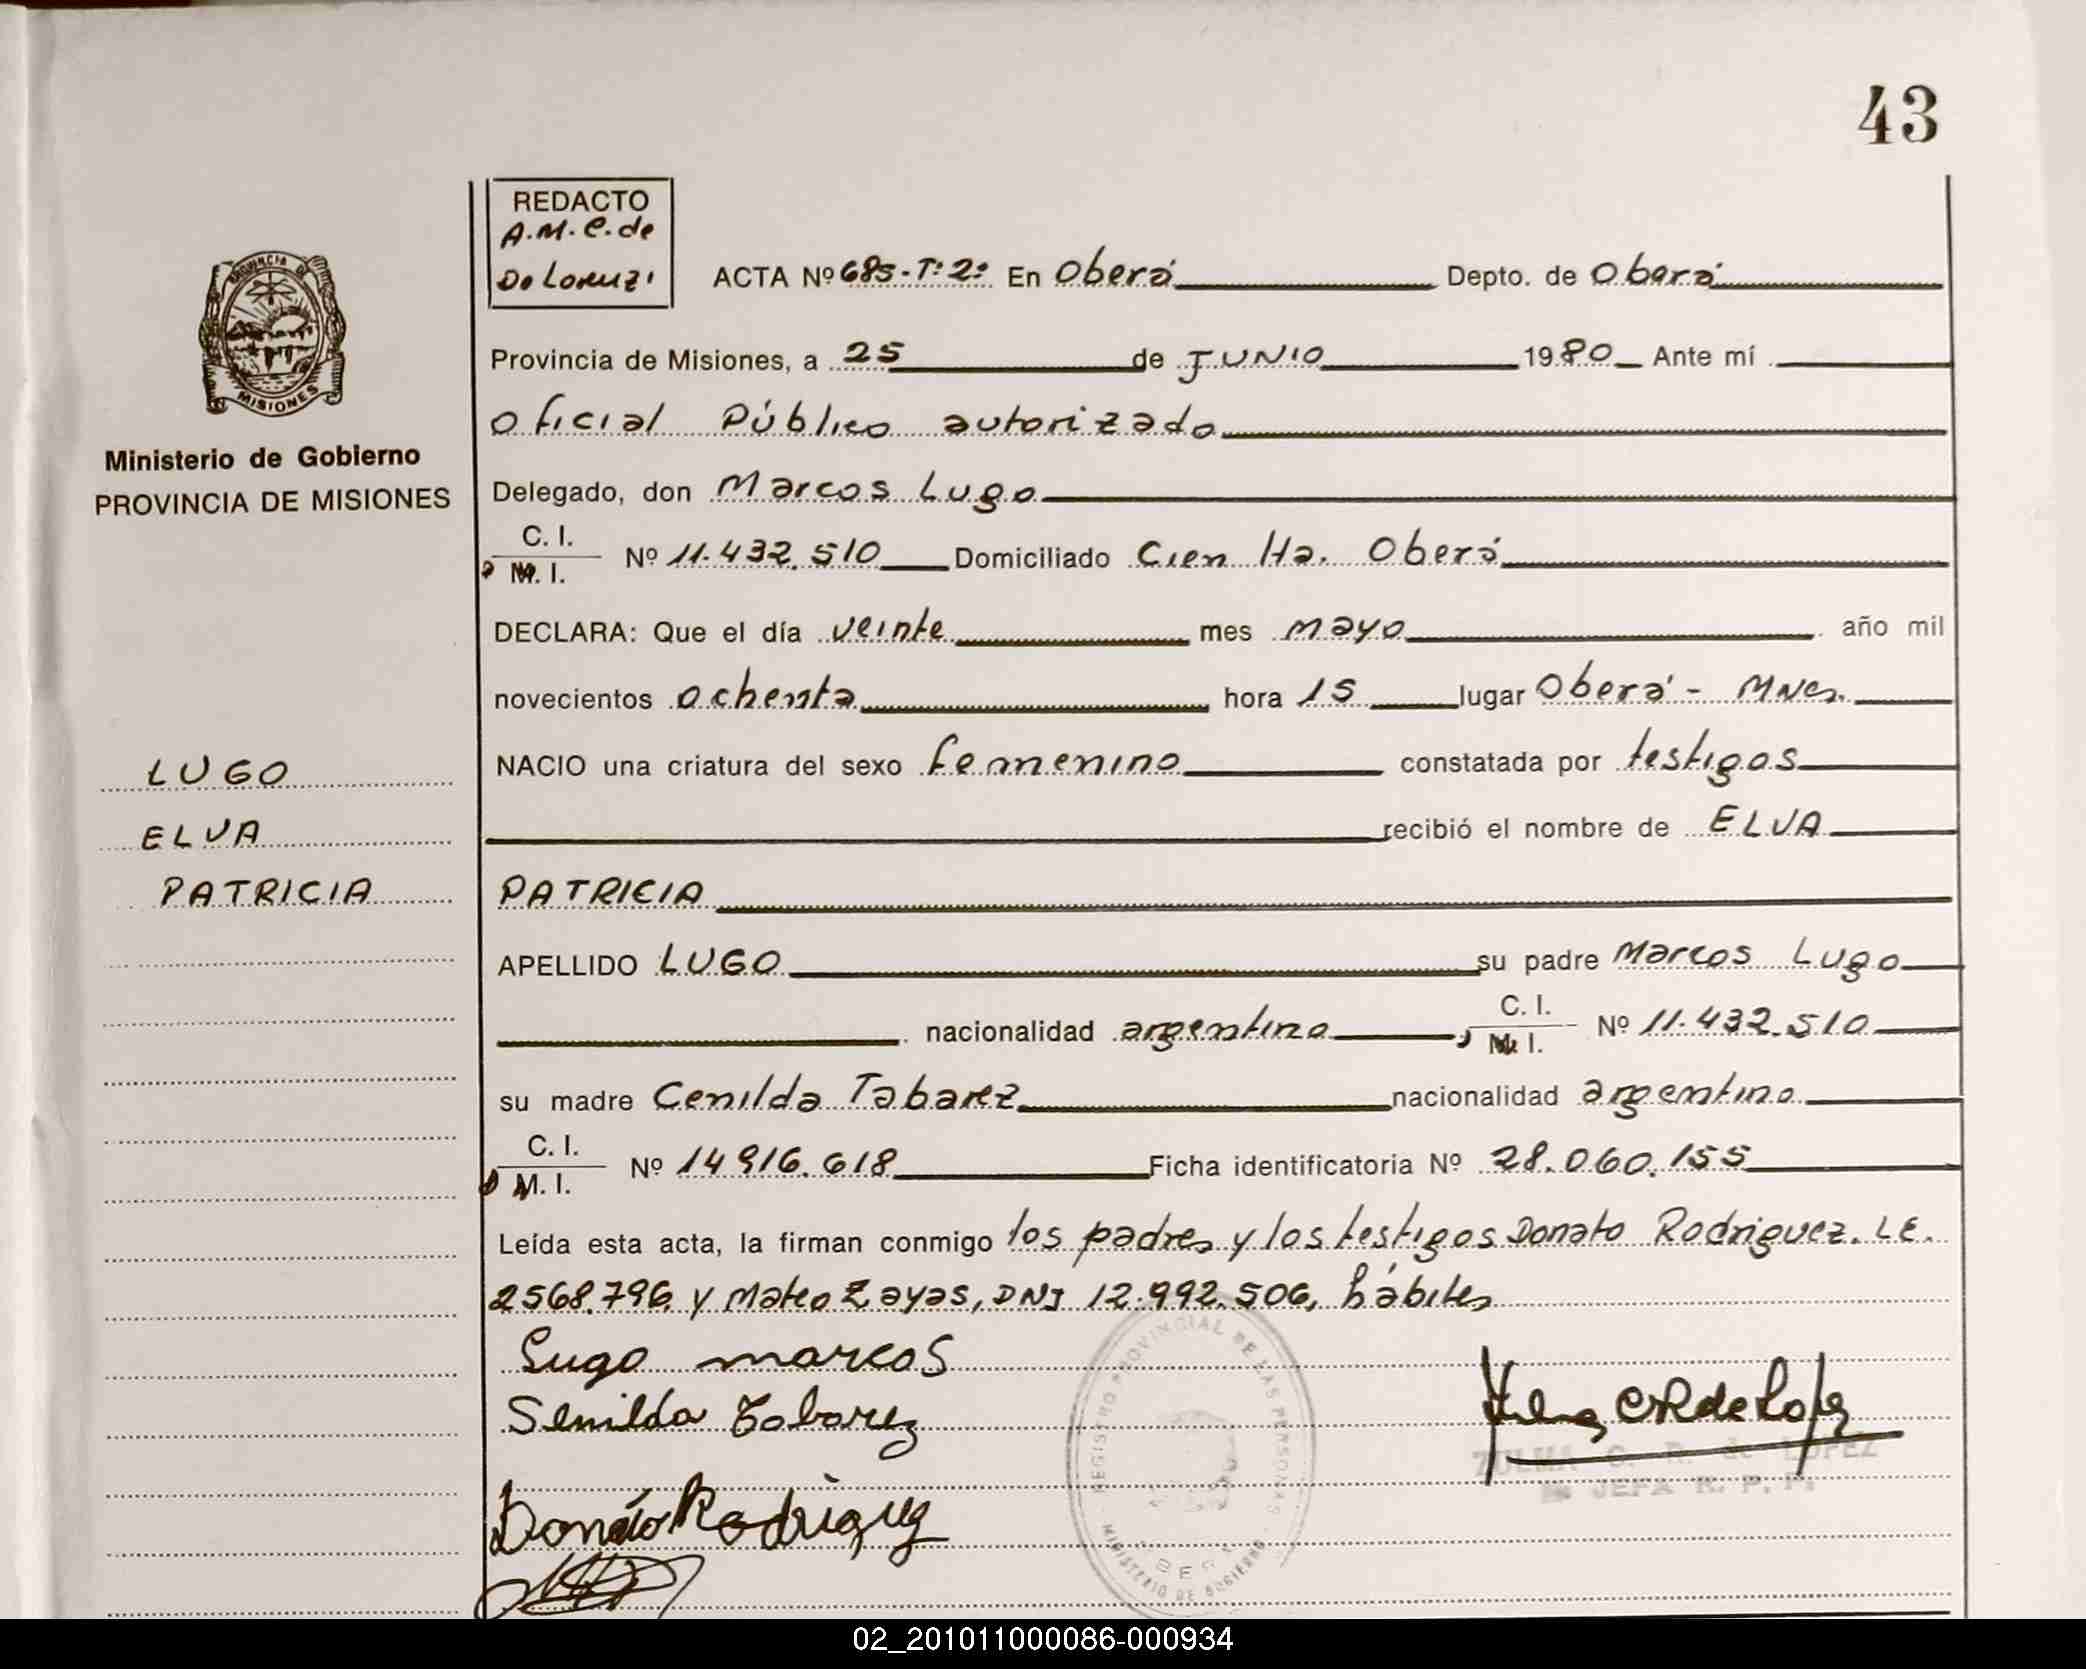 43
REDACTO
A.M.C. de
De Lorenzi
ACTA Nº 685-Tº 2º En Oberá Depto. de Oberá
PROVINCIA DE
MISIONES
Provincia de Misiones, a 25 de JUNIO 1980 Ante mí
Oficial Público autorizado
Ministerio de Gobierno
PROVINCIA DE MISIONES
Delegado, don Marcos Lugo
C. I.
M. I. Nº 11.432.510 Domiciliado Cien Ha. Oberá
DECLARA: Que el día veinte mes mayo año mil
novecientos ochenta hora 15 lugar Oberá - Mnes.
LUGO
NACIO una criatura del sexo femenino constatada por testigos
ELVA
recibió el nombre de ELVA
PATRICIA
PATRICIA
APELLIDO LUGO su padre Marcos Lugo
nacionalidad argentina C. I.
M. I. Nº 11.432.510
su madre Cenilda Tabarez nacionalidad argentina
C. I.
M. I. Nº 14916.618 Ficha identificatoria Nº 28.060.155
Leída esta acta, la firman conmigo los padres y los testigos Donato Rodriguez. LE.
2568.796 y Mateo Zayas, DNI 12.992.506, hábiles
Lugo marcos
Senilda Tabarez
Donato Rodriguez
REGISTRO PROVINCIAL DE LAS PERSONAS
OBERA
MINISTERIO DE GOBIERNO
ZULMA C. R. de LOPEZ
JEFA R. P. P.
02_201011000086-000934